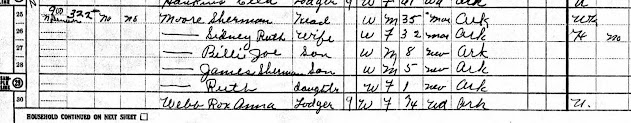 Lodger 9 W F
25 900 322 No no Moore Sherman Head W M 35 mar Ark
26 — Sidney Ruth Wife W F 32 mar Ark H no
27 — Billie Joe Son W M 8 new Ark
28 — James Sherman Son W M 5 new Ark
29 — Ruth daughter W F 1 new Ark
30 Webb Rox Anna Lodger 9 W F 74 wd Ark U.
HOUSEHOLD CONTINUED ON NEXT SHEET ☐